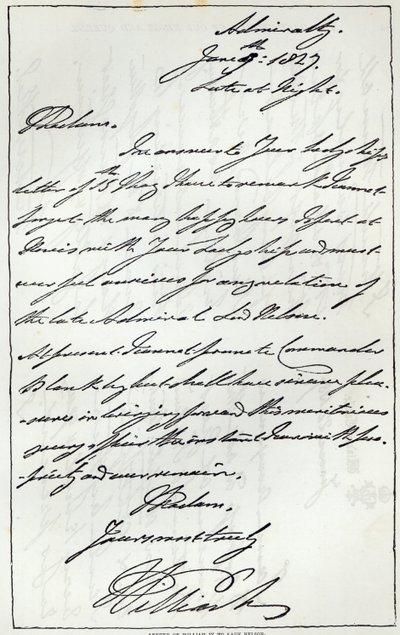 Admiralty.
June 9th: 1827.
Late at Night.
Madam.
In answer to Your Ladyship's
letter of 15th May I have to remark I cannot
forget the many happy hours I spent at
Nevis with Your Ladyship and must
ever feel anxious for any relation of
the late Admiral Lord Nelson.
At present I cannot promote Commander
Blanckley but shall have sincere plea
-sure in bringing forward this meritorious
young officer the instant I can with pro
-priety and ever remain.
Madam.
Yours most truly
William
LETTER OF WILLIAM IV TO LADY NELSON.